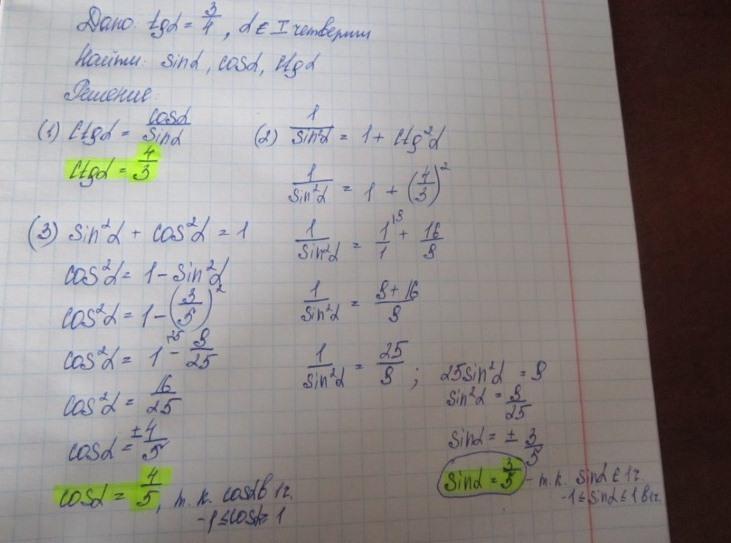 Дано: tgα = 3/4, α ∈ I четверти
Найти: sinα, cosα, ctgα
Решение:
(1) ctgα = cosα/sinα
ctgα = 4/3
(2) 1/sin²α = 1 + ctg²α
1/sin²α = 1 + (4/3)²
1/sin²α = 1/1 + 16/9
1/sin²α = 9+16/9
1/sin²α = 25/9 ; 25sin²α = 9
sin²α = 9/25
sinα = ± 3/5
sinα = 3/5 - т.к. sinα ∈ 1ч.
-1 ≤ sinα ≤ 1
(3) sin²α + cos²α = 1
cos²α = 1 - sin²α
cos²α = 1 - (3/5)²
cos²α = 1 - 9/25
cos²α = 16/25
cosα = ±4/5
cosα = 4/5, т.к. cosα в 1ч.